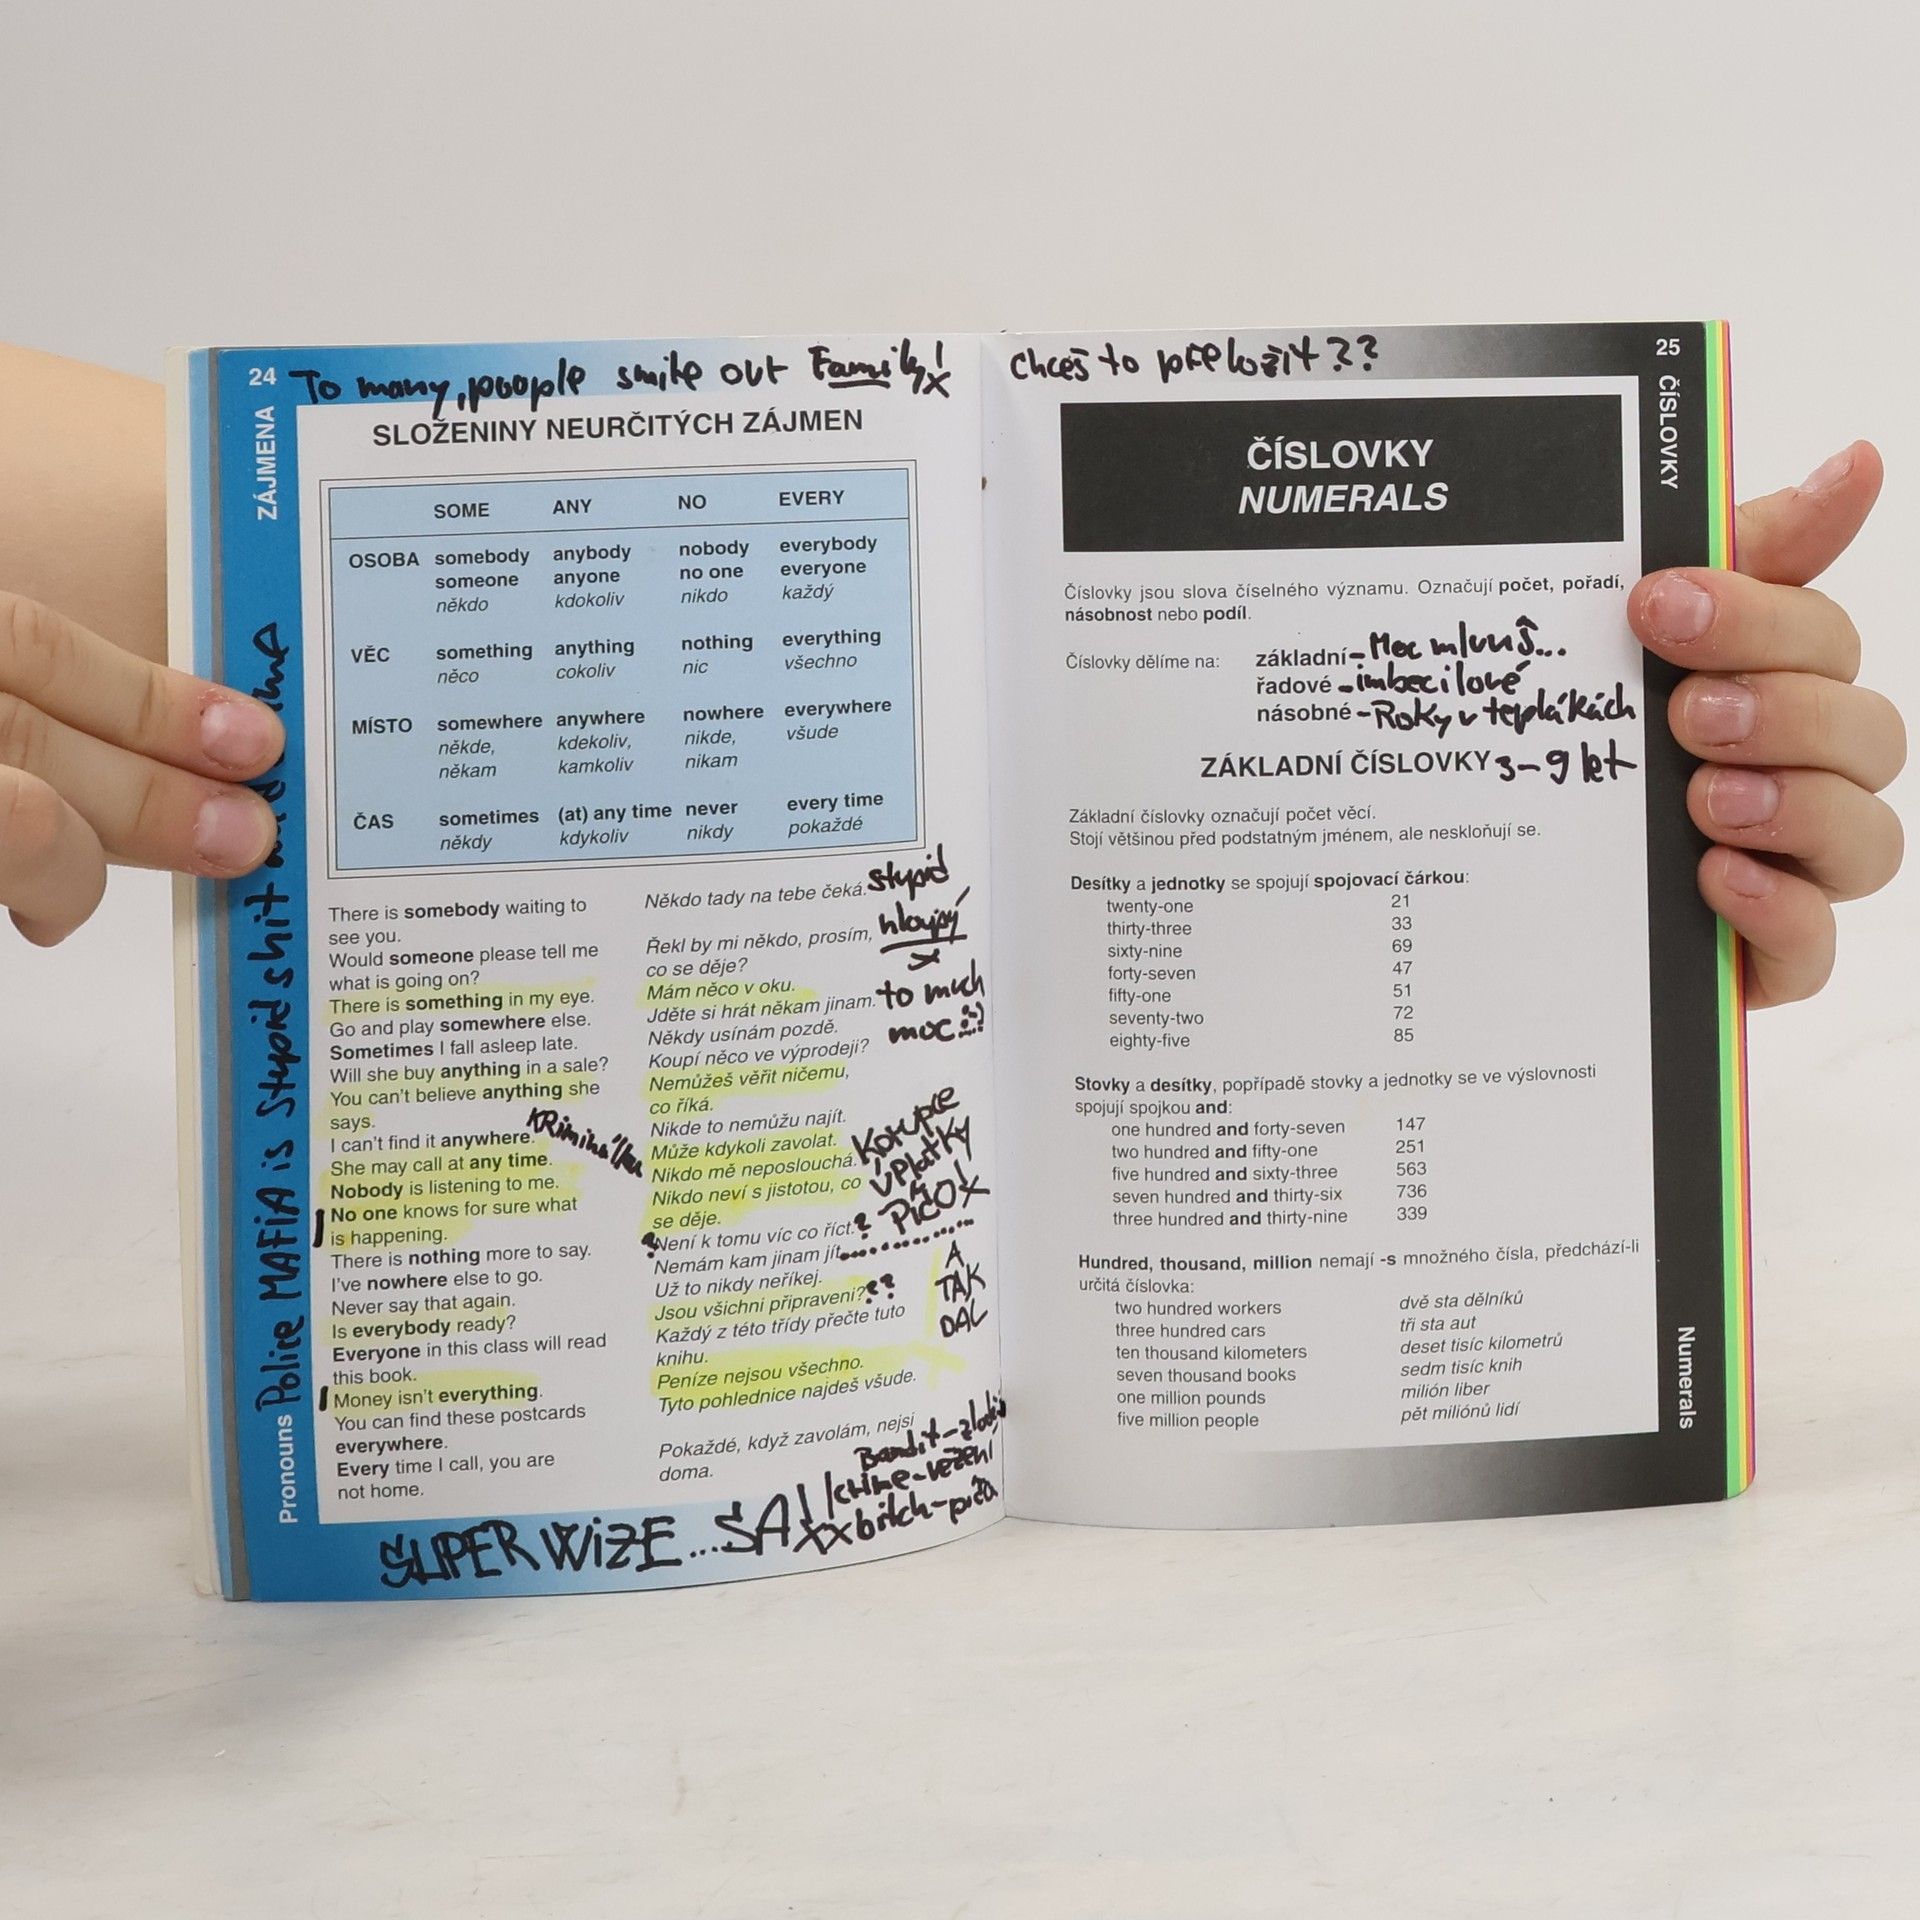 24
ZÁJMENA
Pronouns
To many, poople smile out Family!
x
Police MAFiA is Stupid shit
SLOŽENINY NEURČITÝCH ZÁJMEN
SOME ANY NO EVERY
OSOBA somebody anybody nobody everybody
someone anyone no one everyone
někdo kdokoliv nikdo každý
VĚC something anything nothing everything
něco cokoliv nic všechno
MÍSTO somewhere anywhere nowhere everywhere
někde, kdekoliv, nikde, všude
někam kamkoliv nikam
ČAS sometimes (at) any time never every time
někdy kdykoliv nikdy pokaždé
There is somebody waiting to
see you.
Would someone please tell me
what is going on?
There is something in my eye.
Go and play somewhere else.
Sometimes I fall asleep late.
Will she buy anything in a sale?
You can't believe anything she
says.
I can't find it anywhere.
She may call at any time.
Nobody is listening to me.
No one knows for sure what
is happening.
There is nothing more to say.
I've nowhere else to go.
Never say that again.
Is everybody ready?
Everyone in this class will read
this book.
Money isn't everything.
You can find these postcards
everywhere.
Every time I call, you are
not home.
Někdo tady na tebe čeká.
Řekl by mi někdo, prosím,
co se děje?
Mám něco v oku.
Jděte si hrát někam jinam.
Někdy usínám pozdě.
Koupí něco ve výprodeji?
Nemůžeš věřit ničemu,
co říká.
Nikde to nemůžu najít.
Může kdykoli zavolat.
Nikdo mě neposlouchá.
Nikdo neví s jistotou, co
se děje.
Není k tomu víc co říct.?
Nemám kam jinam jít.
Už to nikdy neříkej.
Jsou všichni připraveni???
Každý z této třídy přečte tuto
knihu.
Peníze nejsou všechno.
Tyto pohlednice najdeš všude.
Pokaždé, když zavolám, nejsi
doma.
stupid
hloupý
x
to much
moc
Korupce
ÚPlatky
A
PičOX
A
TAK
DAL
Bandit-
crime-vězení
xx bitch-piča
SUPER WiZE...SA!
Chceš to přeložit??
25
ČÍSLOVKY
Numerals
ČÍSLOVKY
NUMERALS
Číslovky jsou slova číselného významu. Označují počet, pořadí,
násobnost nebo podíl.
Číslovky dělíme na: základní - Moc mluvíš...
řadové - imbecilové
násobné - Roky v teplákách
ZÁKLADNÍ ČÍSLOVKY 3-9 let
Základní číslovky označují počet věcí.
Stojí většinou před podstatným jménem, ale neskloňují se.
Desítky a jednotky se spojují spojovací čárkou:
twenty-one 21
thirty-three 33
sixty-nine 69
forty-seven 47
fifty-one 51
seventy-two 72
eighty-five 85
Stovky a desítky, popřípadě stovky a jednotky se ve výslovnosti
spojují spojkou and:
one hundred and forty-seven 147
two hundred and fifty-one 251
five hundred and sixty-three 563
seven hundred and thirty-six 736
three hundred and thirty-nine 339
Hundred, thousand, million nemají -s množného čísla, předchází-li
určitá číslovka:
two hundred workers dvě sta dělníků
three hundred cars tři sta aut
ten thousand kilometers deset tisíc kilometrů
seven thousand books sedm tisíc knih
one million pounds milión liber
five million people pět miliónů lidí